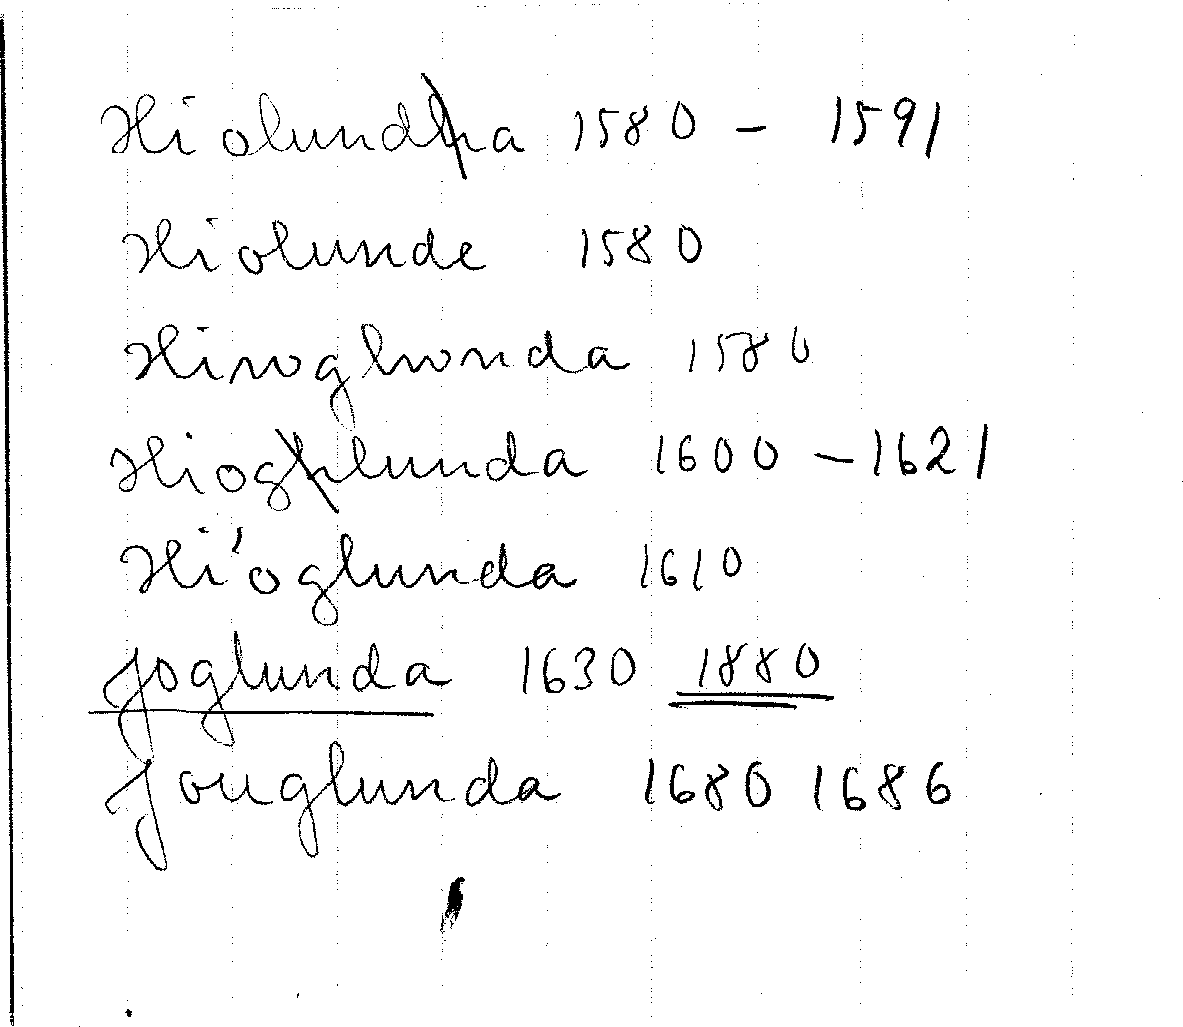 Hiolunda 1580 – 1591
Hiolunde 1580
Hiroglunda 1580
Hioglunda 1600 – 1621
Hi'oglunda 1610
Joglunda 1630 1880
Jouglunda 1680 1686